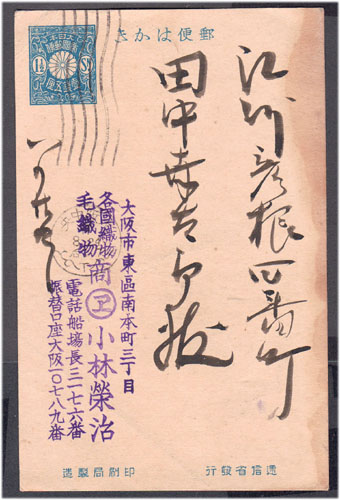 郵便はかき
江州彦根四番町
田中幸太郎様
大阪市東區南本町三丁目
各國織物
毛織物
商 ㋓ 小林榮治
電話船場長三一七六番
振替口座大阪一〇七八九番
1½ Sn
遞信省發行
印刷局製造